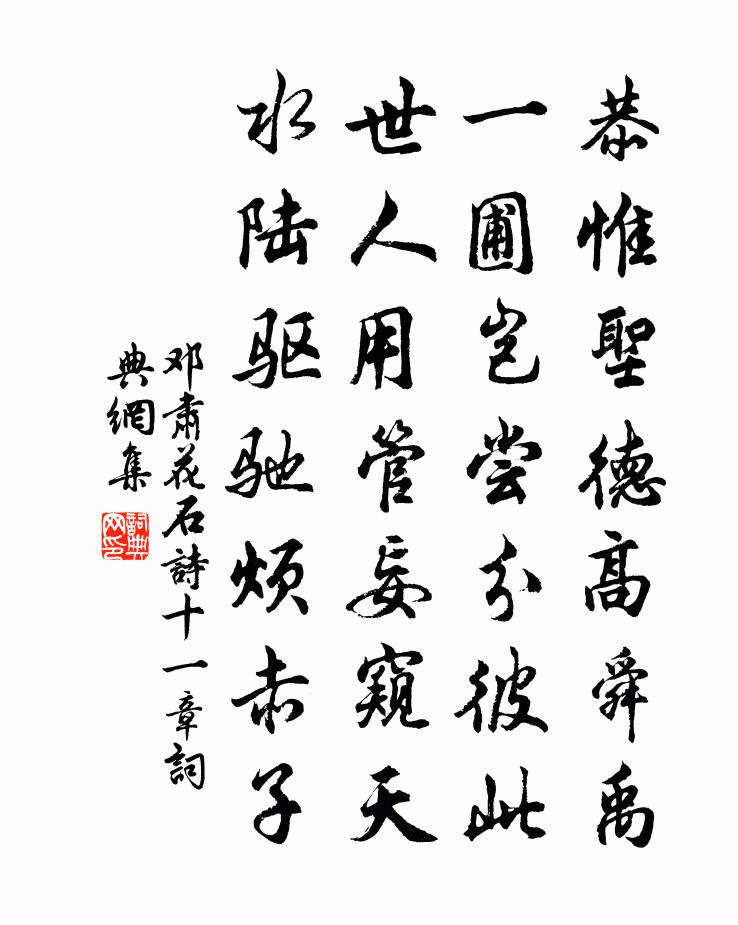 恭惟聖德高舜禹
一圃岂尝分彼此
世人用管妄窺天
水陆驱驰烦赤子
邓肅花石詩十一章詞
典網集
詞典网印